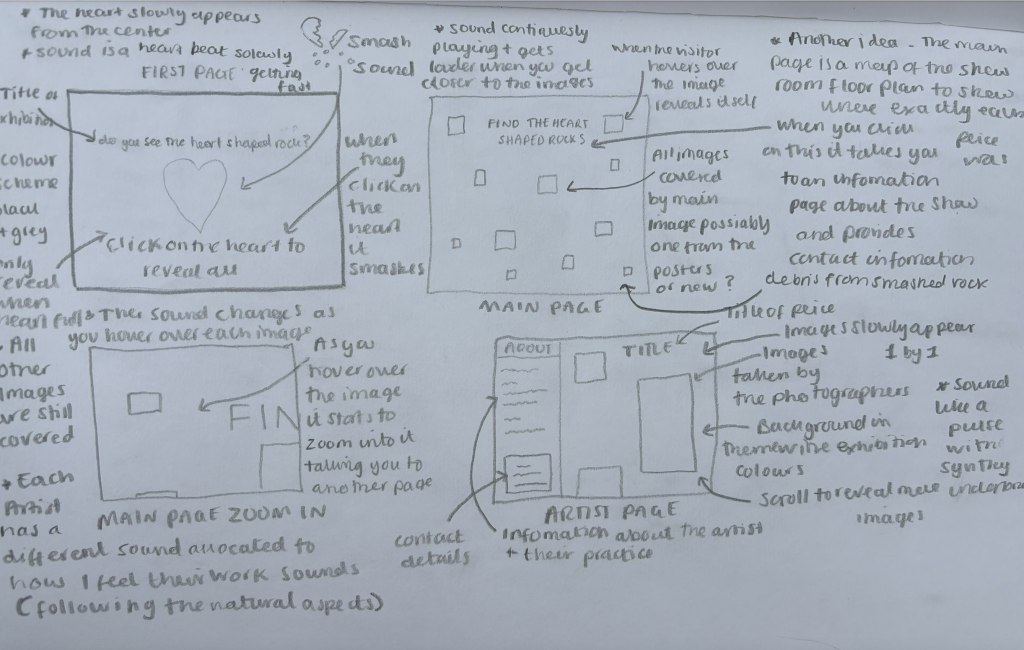 * The heart slowly appears
from the center
* sound is a heart beat solowly
getting
fast
FIRST PAGE
Smash
Sound
Title of
exhibition
do you see the heart shaped rock?
colour
scheme
black
+ grey
only
reveal
when
heart full
Click on the heart to
reveal all
when
they
click on
the
heart
it
smashes
* sound continuesly
playing + gets
louder when you get
closer to the images
when the visitor
hovers over
the image
reveals itself
FIND THE HEART
SHAPED ROCKS
All images
covered
by main
Image possiably
one from the
posters
or new?
MAIN PAGE
* Another idea - The main
page is a map of the show
room floor plan to show
where exactly each
peice
was
when you click
on this it takes you
to an infomation
page about the show
and provides
contact infomation
debris from smashed rock
* The sound changes as
you hover over each image
All
other
Images
are still
covered
FIN
As you
hover over
the image
it stats to
zoom into it
taking you to
another page
MAIN PAGE ZOOM IN
* Each
Artist
has a
different sound allocated to
how I feel their work sounds
(following the natural aspects)
ABOUT
TITLE
Title of peice
Images slowly appear
1 by 1
Images
taken by
the photographers
Background in
theme w the exhibition
colours
Scroll to reveal more
images
* Sound
like a
pulse
with
synthy
ARTIST PAGE
contact
details
Infomation about the artist
+ their practice